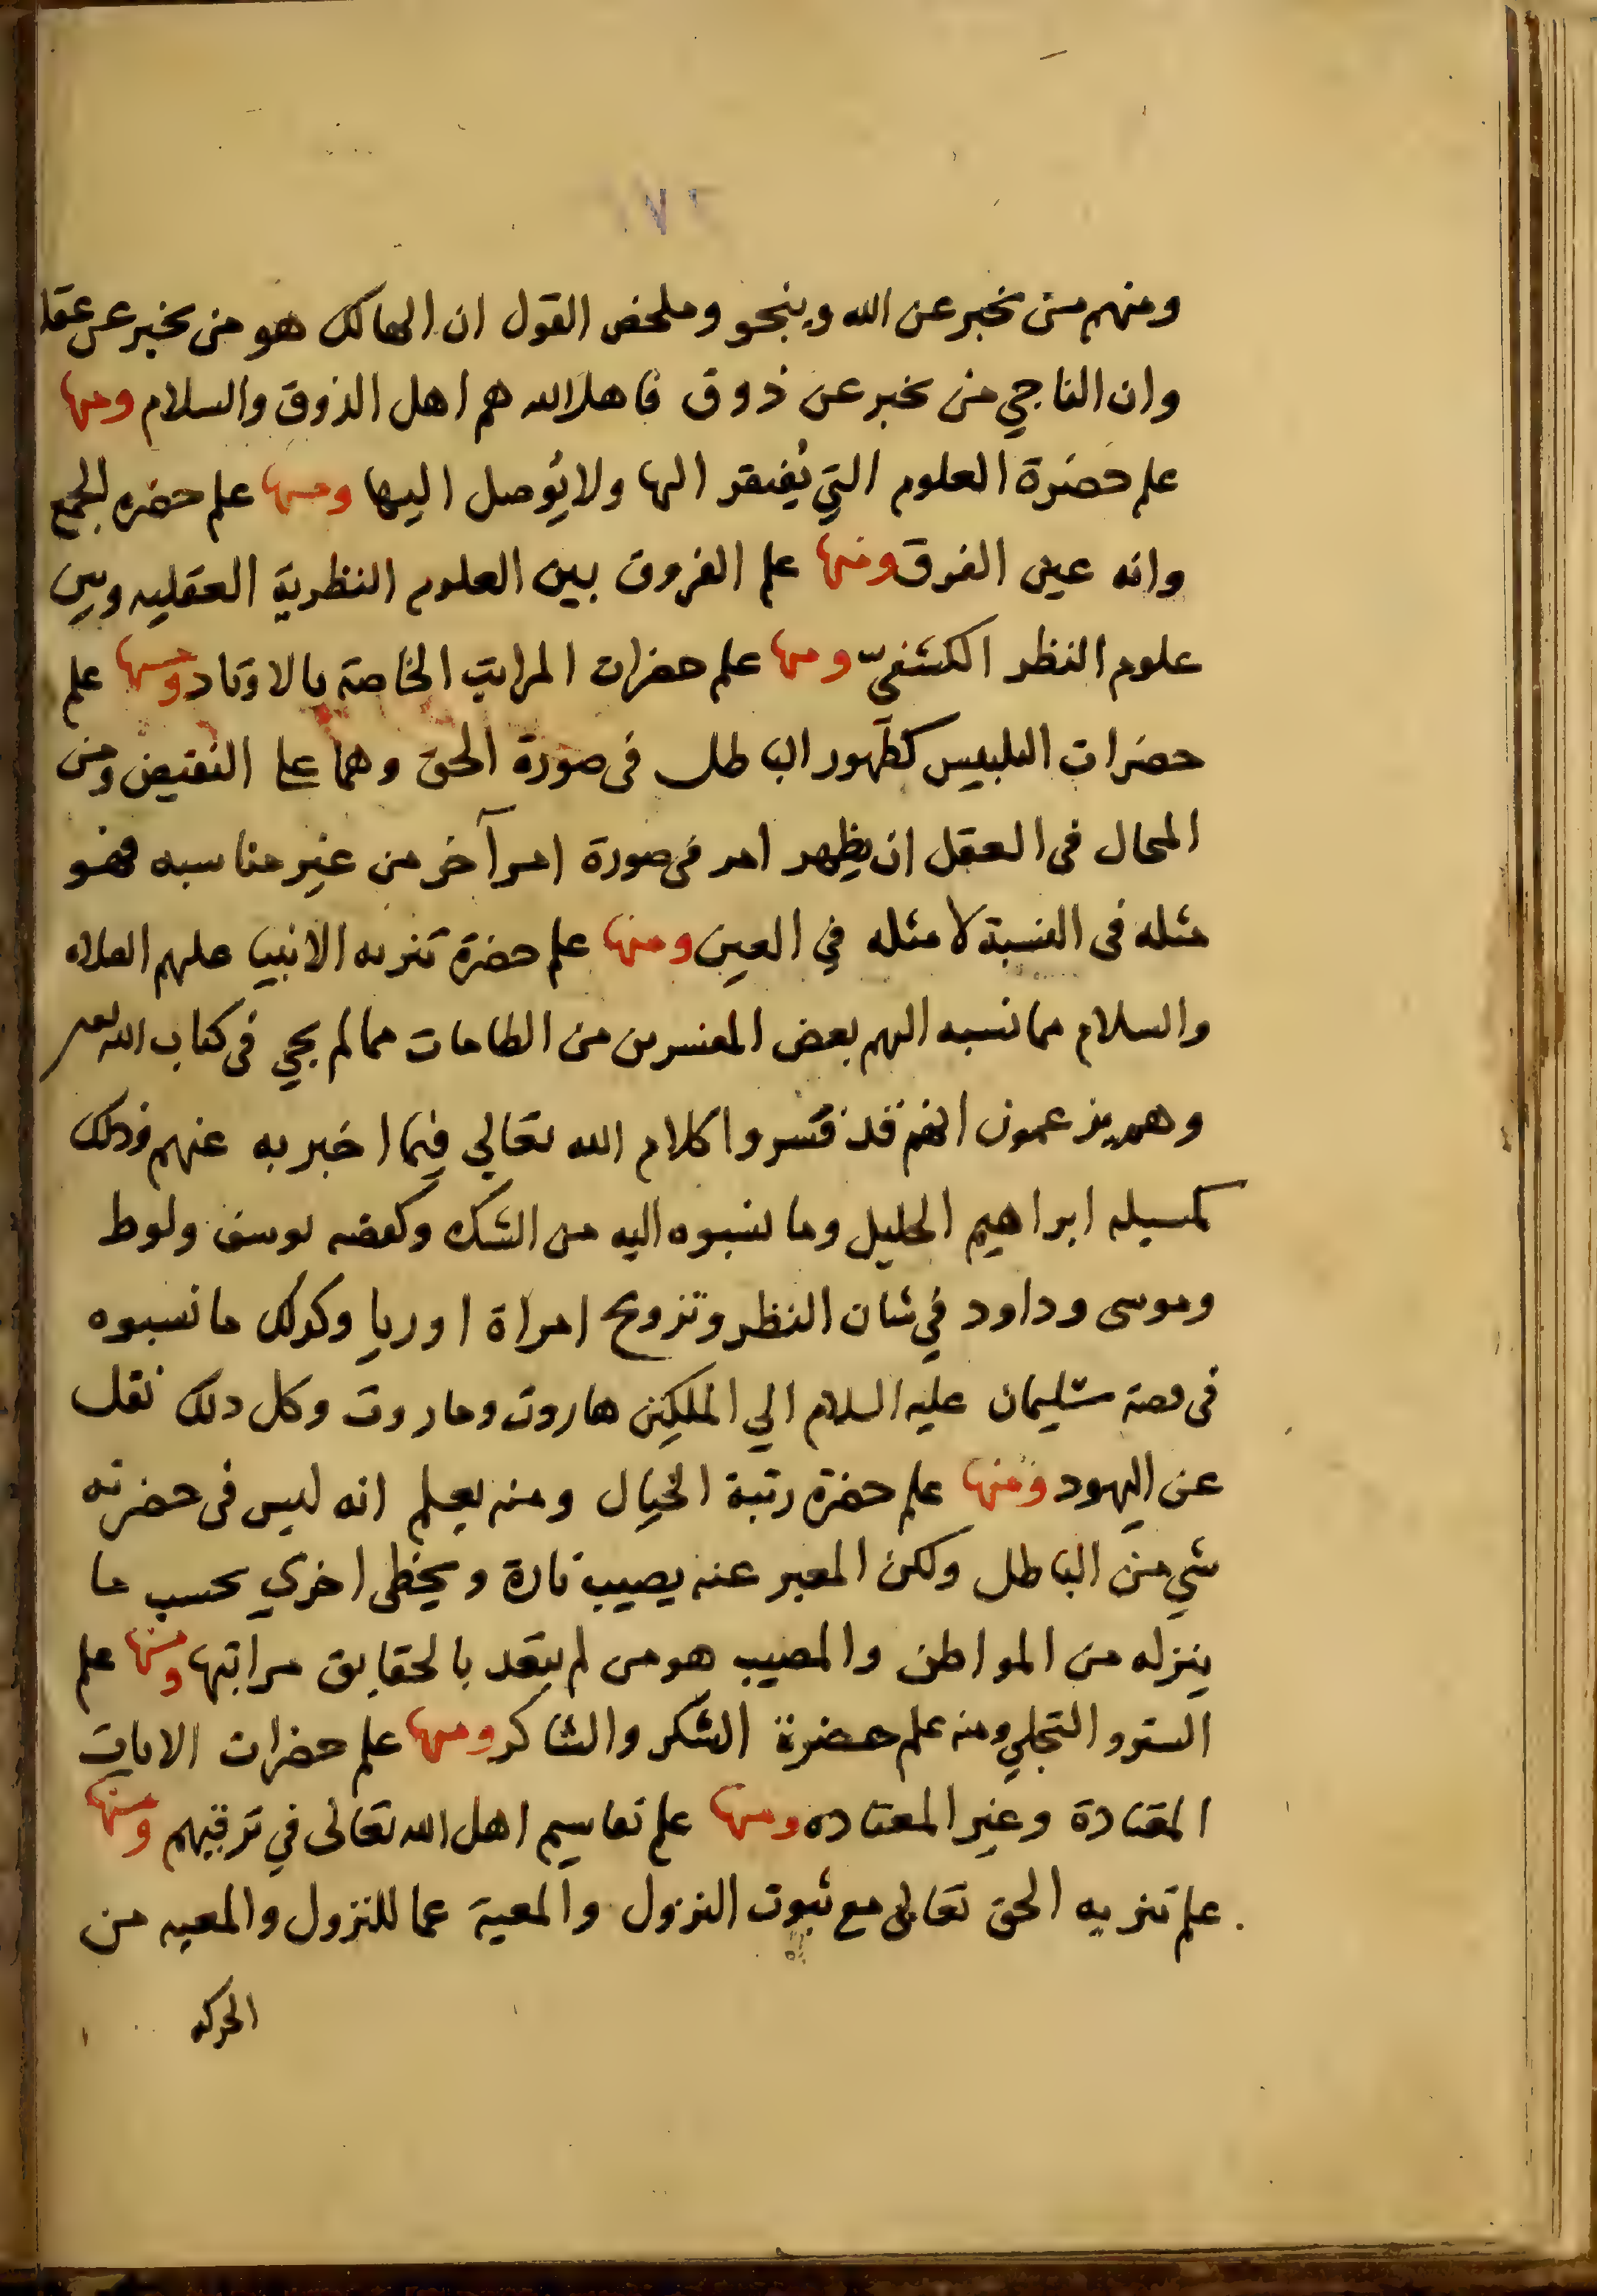 ومنهم من يخبر عن الله وينجو وملخص القول ان الهالك هو من يخبر عن عقل
وان الناجي من يخبر عن ذوق فاهل الله هم اهل الذوق والسلام ومنها
علم حضرة العلوم التي يُفتقر اليها ولا يُوصل اليها ومنها علم حضره الجمع
وانه عين الفرق ومنها علم الفروق بين العلوم النظرية العقليه وبين
علوم النظر الكشفيّ ومنها علم حضرات المراتب الخاصة بالاوتاد ومنها علم
حضرات التلبيس كظهور الباطل فى صورة الحق وهما على النقيض ومن
المحال فى العقل ان يظهر امر فى صورة امر آخر من غير مناسبه فهو
مثله فى النسبة لا مثله في العين ومنها علم حضرة تنزيه الانبيا عليهم الصلاه
والسلام مما نسبه اليهم بعض المفسرين من الطامات مما لم يجي فى كتاب الله
وهم يزعمون انهم قد فسروا كلام الله تعالي فيما اخبر به عنهم وذلك
كمسيله ابراهيم الخليل وما نسبوه اليه من الشك وكقصه يوسف ولوط
وموسى وداود في شان النظر وتزويج امراة اوريا وكذلك ما نسبوه
فى قصة سليمان عليه السلام الي الملكين هاروت وماروت وكل ذلك نقل
عن اليهود ومنها علم حضرة رتبة الخيال ومنه يعلم انه ليس فى حضرته
شي من الباطل ولكن المعبر عنه يصيب تارة ويخطى اخري بحسب ما
ينزله من المواطن والمصيب هو من لم يتعد بالحقايق مراتبها ومنها علم
الستر و التجلي ومنه علم حضرة الشكر والشاكر ومنها علم حضرات الايات
المعتادة وغير المعتاده ومنها علم تقاسيم اهل الله تعالى في ترقيهم ومنها
علم تنزيه الحق تعالى مع ثبوت النزول والمعية عما للنزول والمعيه من
الحركه